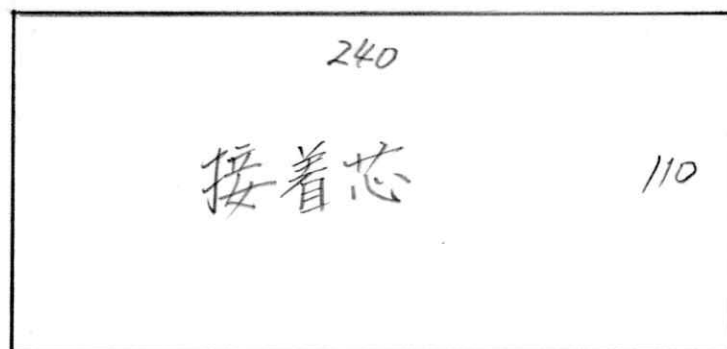 240
接着芯
110